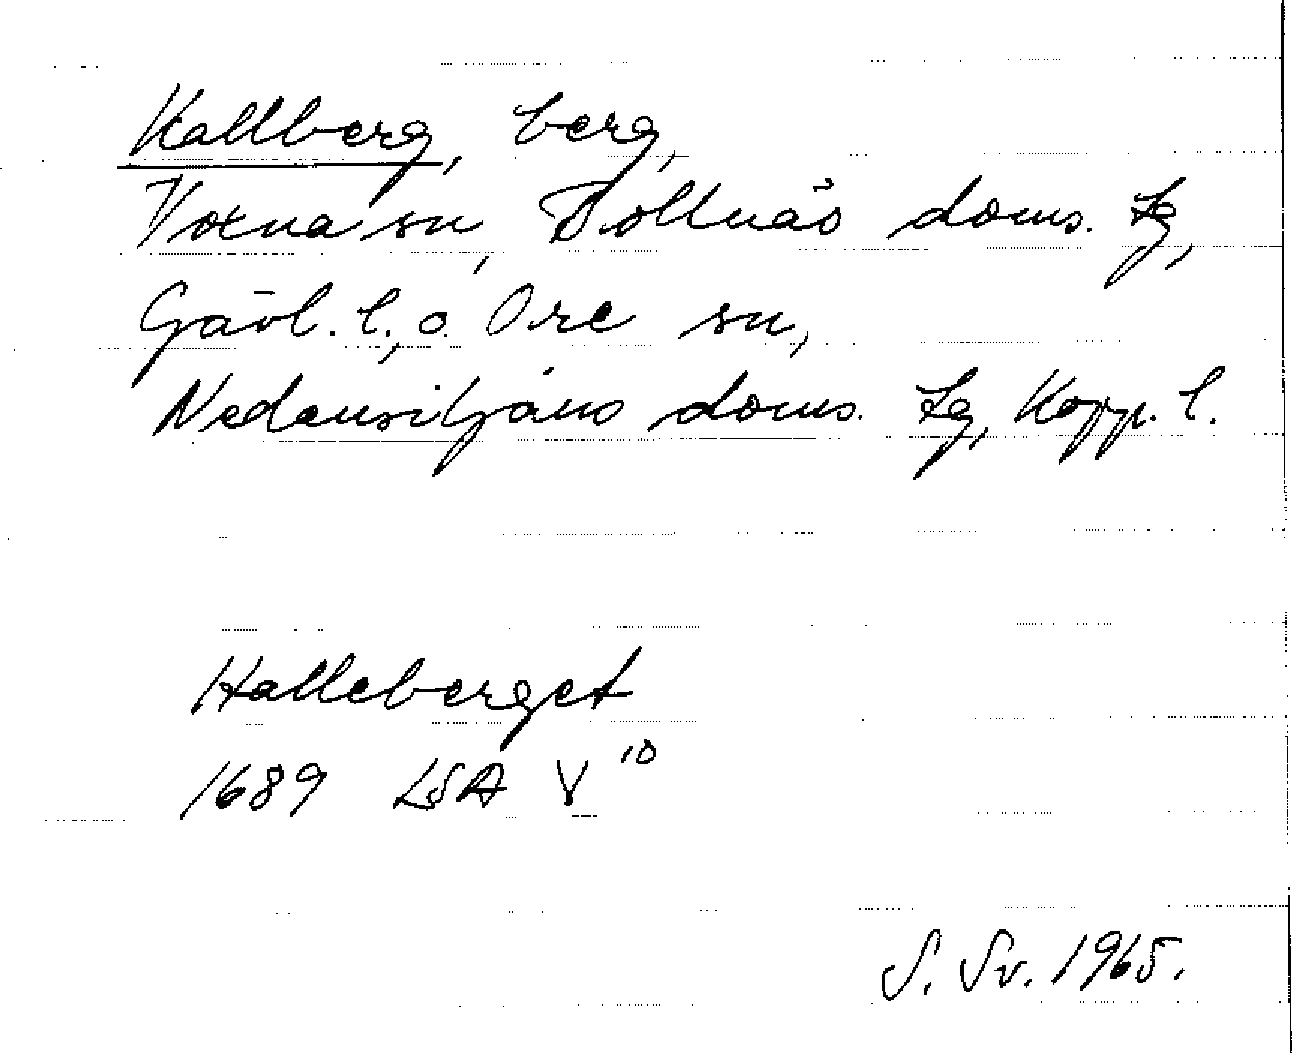 Kallberg, berg,
Voxna sn, Bollnäs doms. tg,
Gävl. l., o. Ore sn,
Nedansiljans doms. tg, Kopp. l.
Halleberget
1689 LSA V 10
S. Sv. 1965.